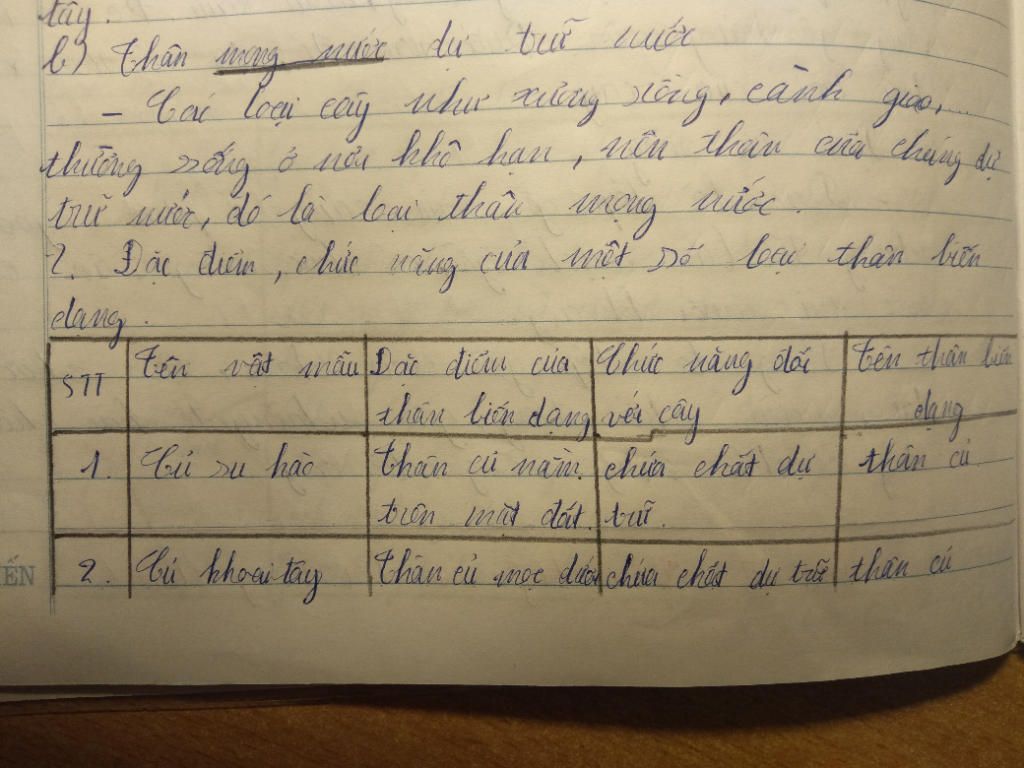 tây.
b) Thân mọng nước dự trữ nước
- Các loại cây như xương rồng, cành giao,...
thường sống ở nơi khô hạn, nên thân của chúng dự
trữ nước, đó là loại thân mọng nước.
2. Đặc điểm, chức năng của một số loại thân biến
dạng.
STT Tên vật mẫu Đặc điểm của thân biến dạng Chức năng đối với cây Tên thân biến dạng
1. Củ su hào Thân củ nằm trên mặt đất. chứa chất dự trữ. thân củ
2. Củ khoai tây Thân củ mọc dưới chứa chất dự trữ thân củ
ẾN